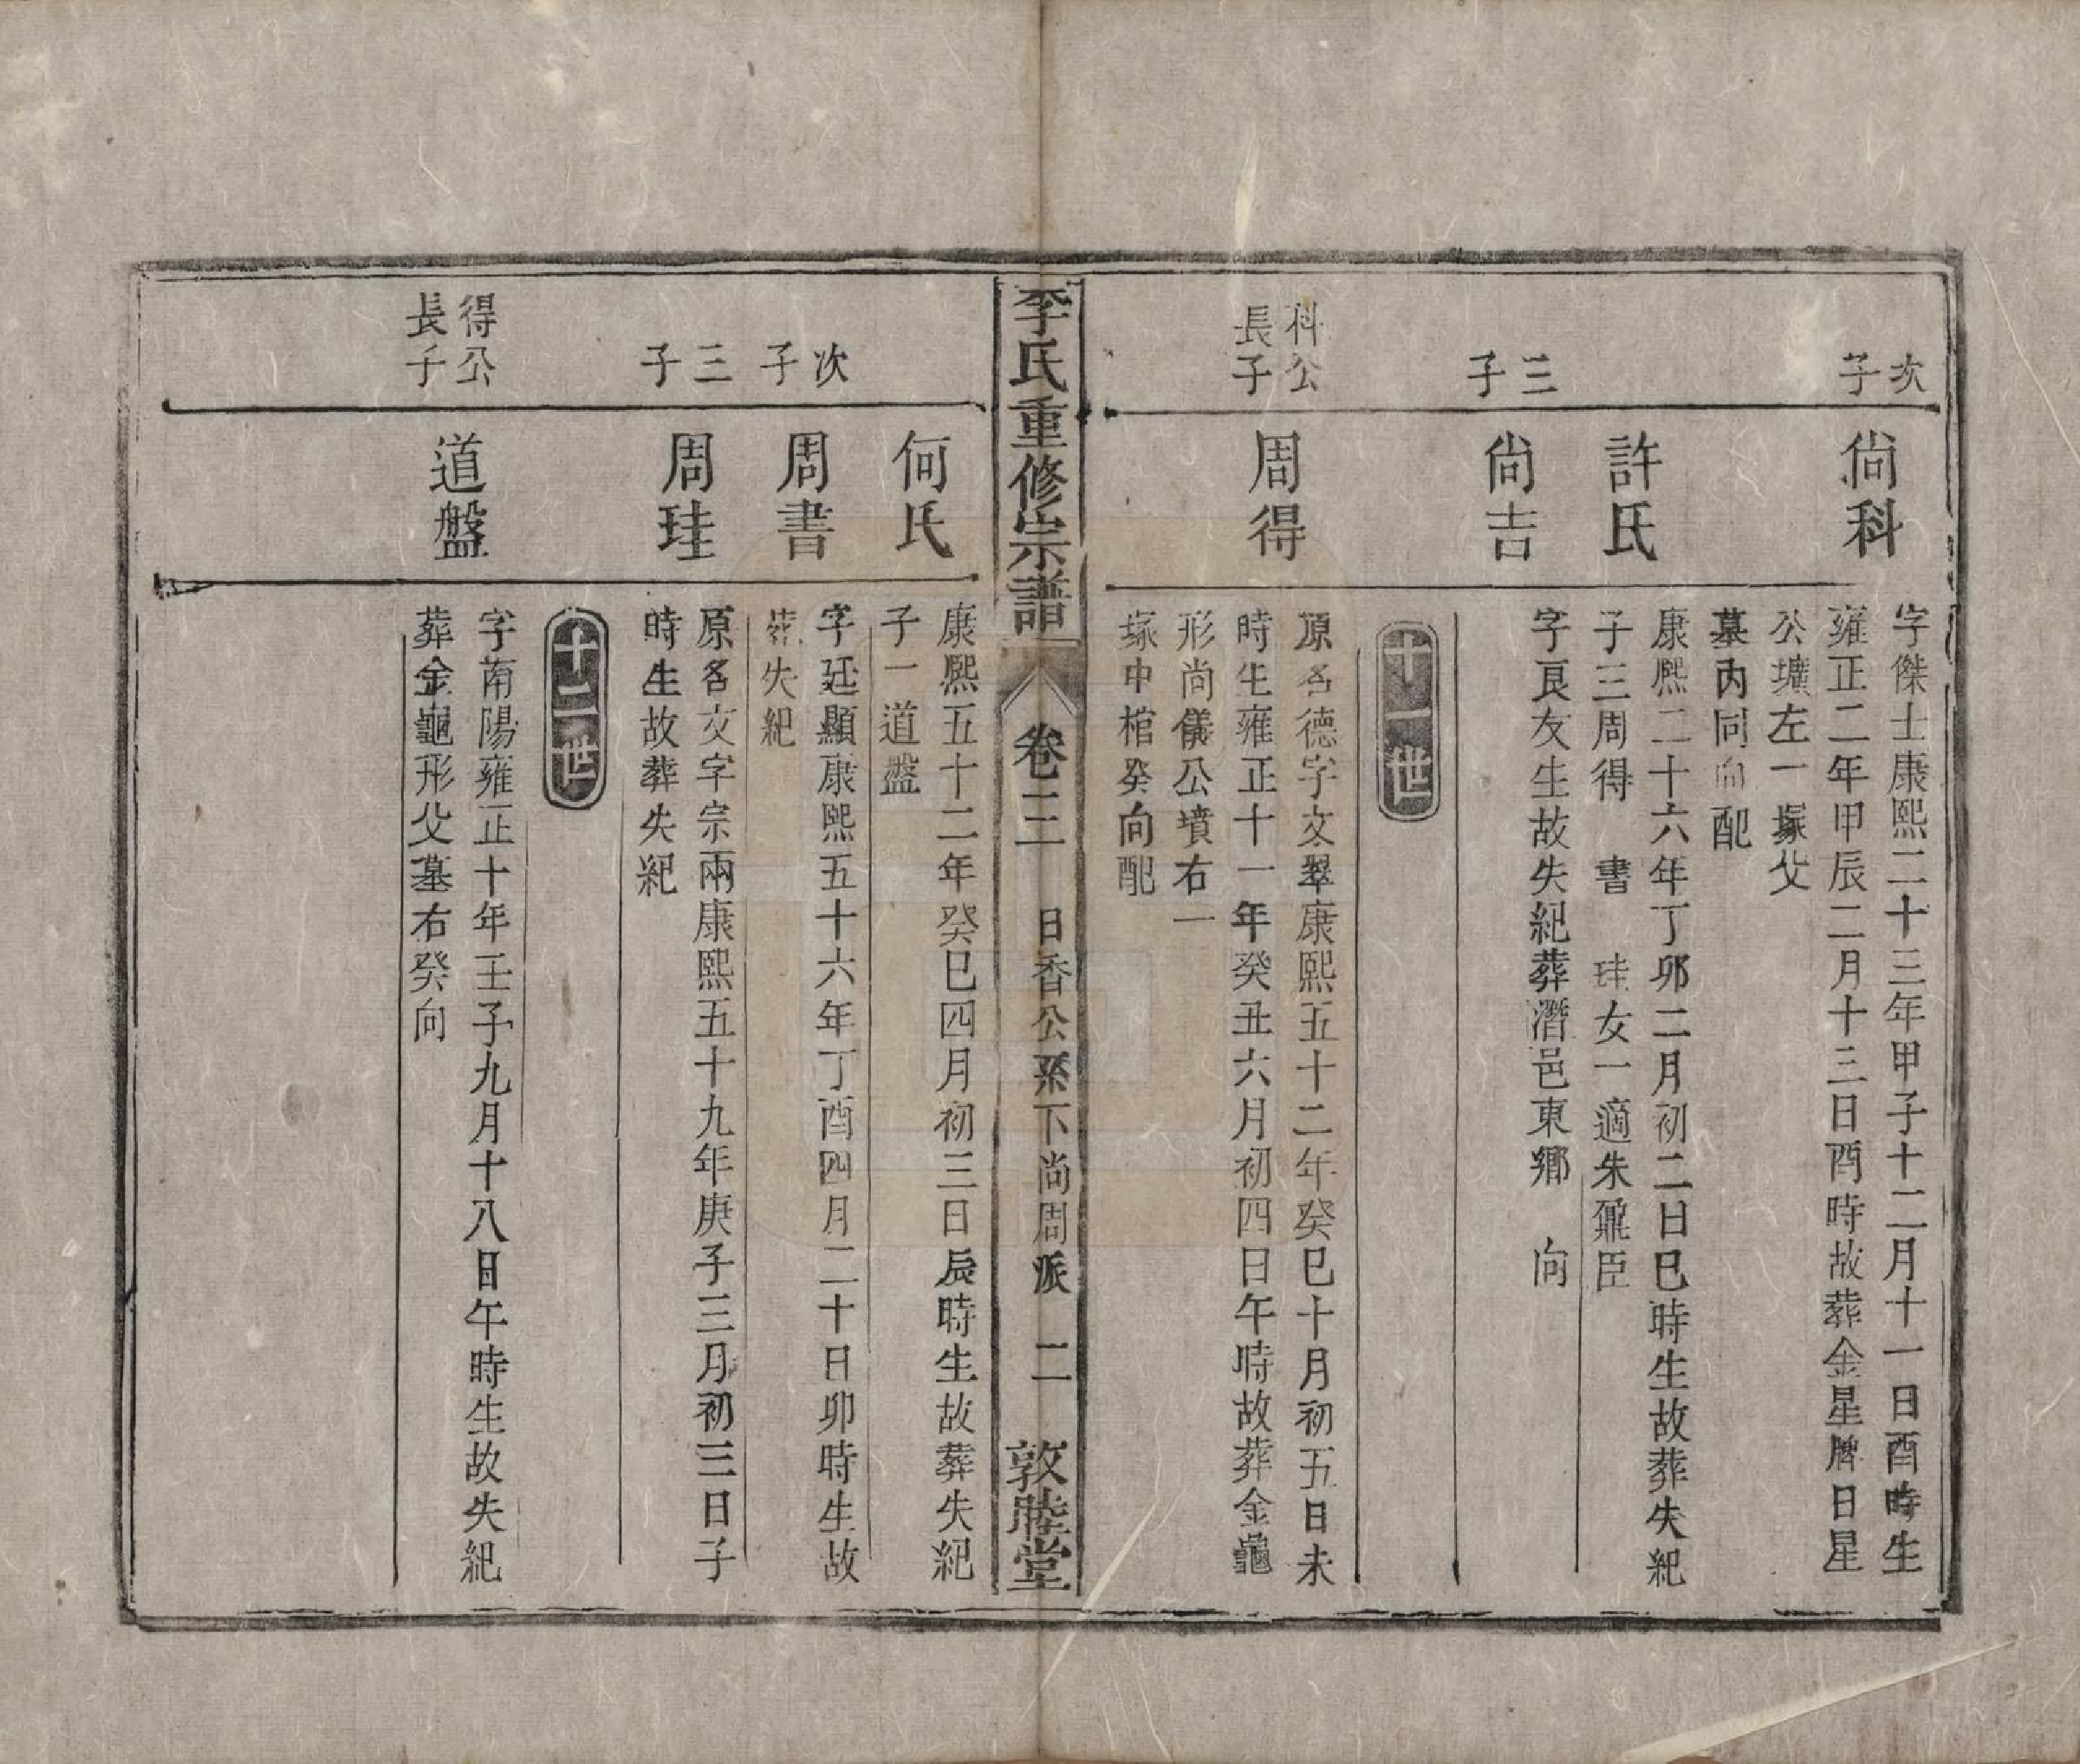 次子
尙科
字傑士康熙二十三年甲子十二月十一日酉時生
雍正二年甲辰二月十三日酉時故葬金星牌日星
公壙左一塚父
墓內同向配
許氏
康熙二十六年丁卯二月初二日巳時生故葬失紀
子三周得　書　珪女一適朱鼐臣
三子
尙吉
字良友生故失紀葬潛邑東鄉　向
十一世
科公
長子
周得
原名德字文翠康熙五十二年癸巳十月初五日未
時生雍正十一年癸丑六月初四日午時故葬金龜
形尚儀公墳右一
塚中棺癸向配
李氏重修宗譜　卷三　日香公系下尚周派　二　敦睦堂
何氏
康熙五十二年癸巳四月初三日辰時生故葬失紀
子一道盤
次子
周書
字廷顯康熙五十六年丁酉四月二十日卯時生故
葬失紀
三子
周珪
原名文字宗兩康熙五十九年庚子三月初三日子
時生故葬失紀
十二世
得公
長子
道盤
字南陽雍正十年壬子九月十八日午時生故失紀
葬金龜形父墓右癸向